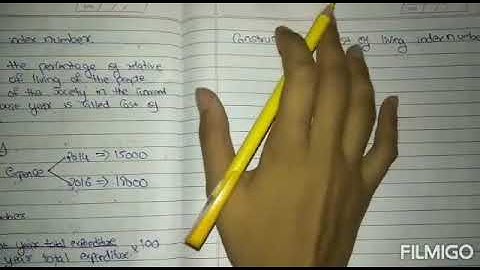 index number.
the percentage of relative
of living of the people
of the society in the current
base year is called Cost of
Expense
2014 => 15000
2016 => 18000
year total expenditure
year total expenditure × 100
Constru of living index numbe
FILMIGO